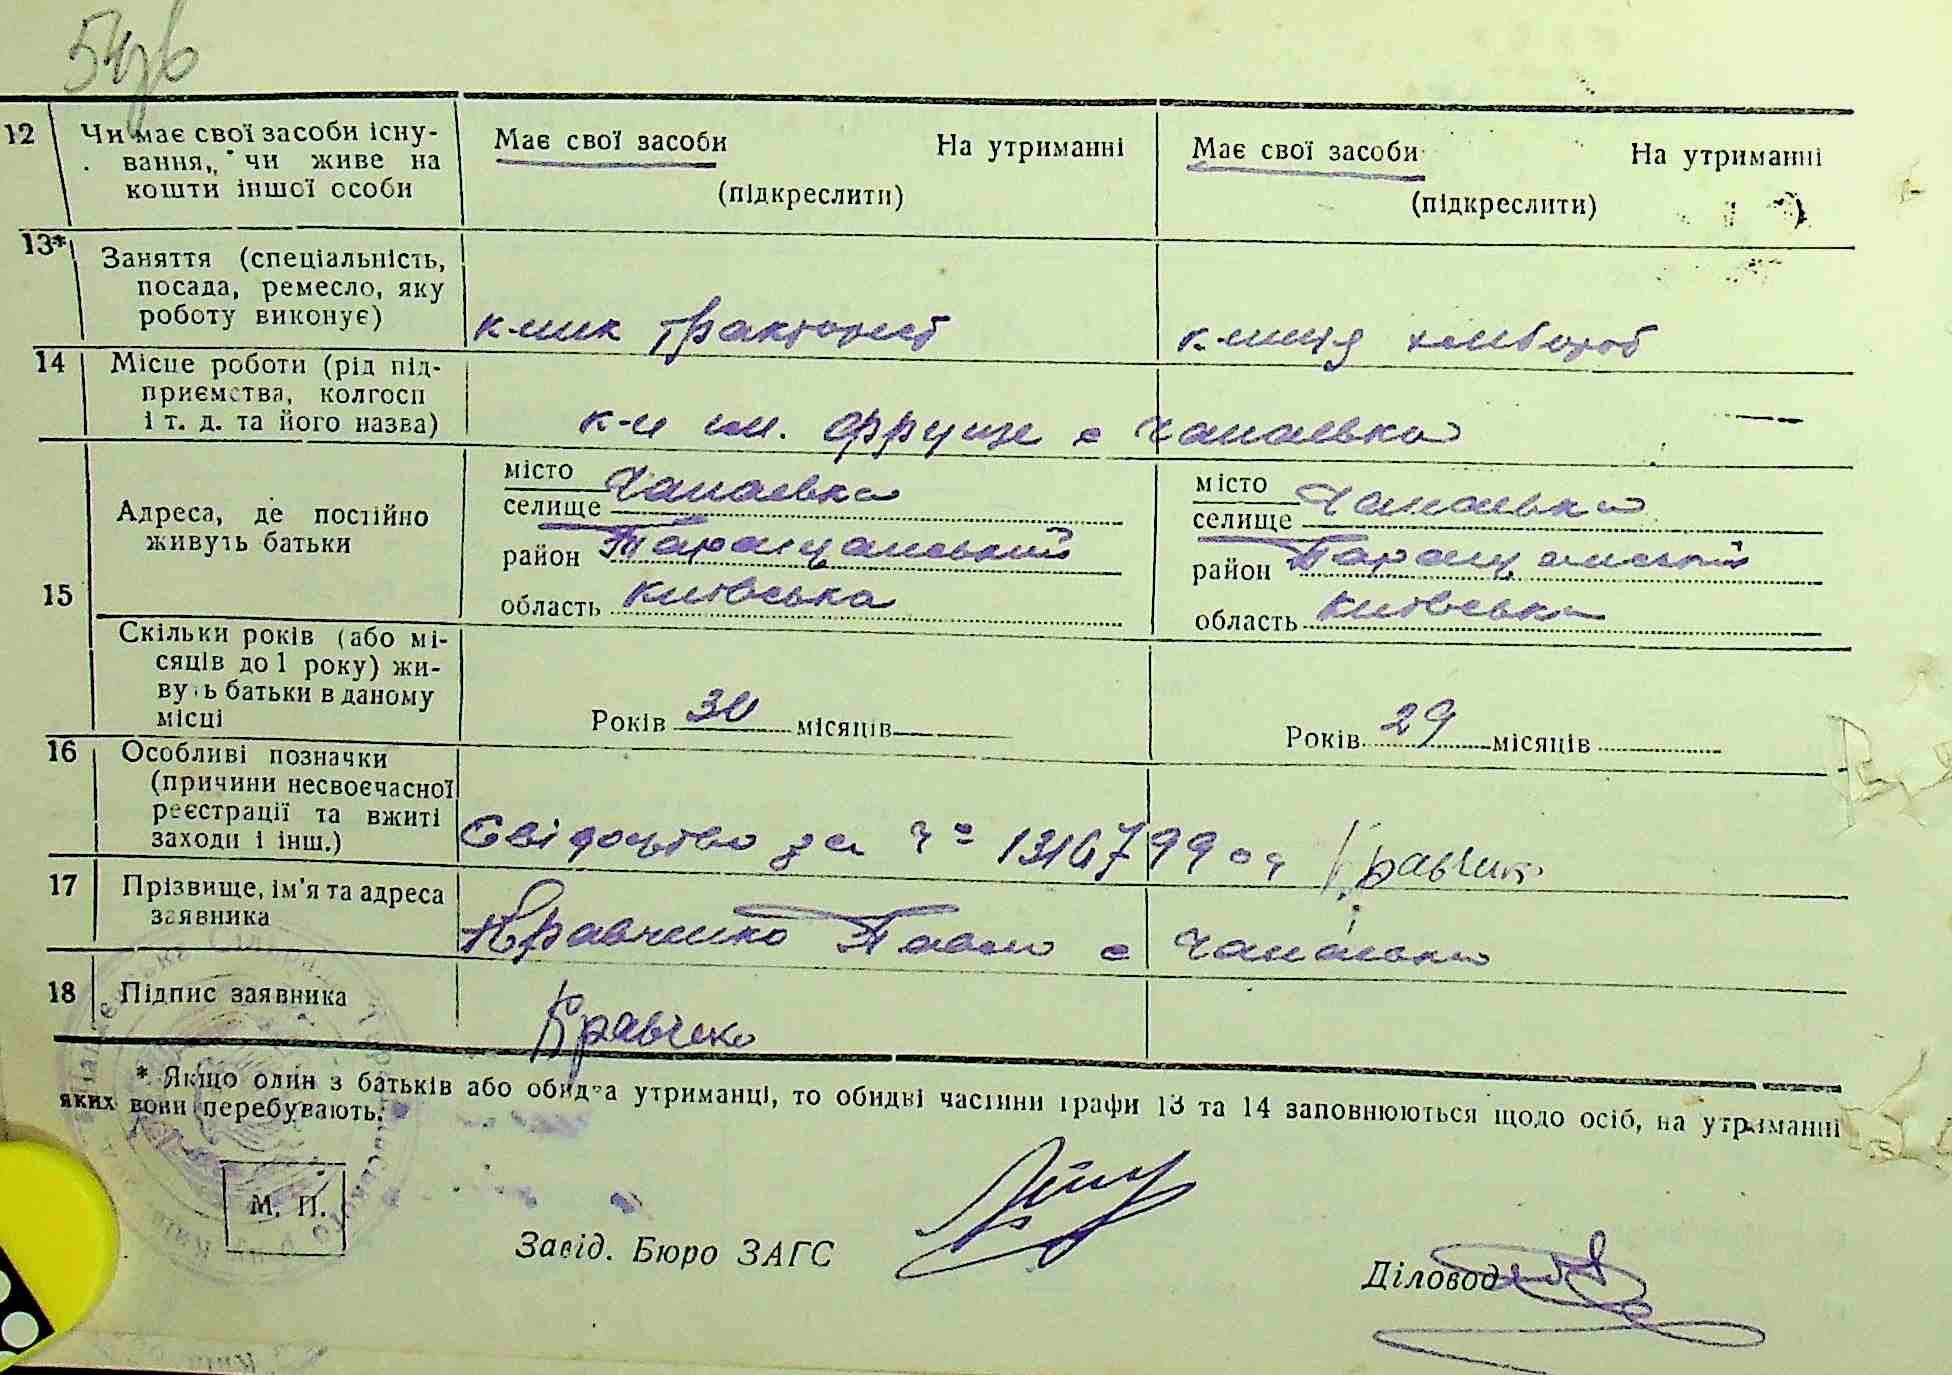 12 Чи має свої засоби існу-
вання, чи живе на
кошти іншої особи
Має свої засоби На утриманні
(підкреслити)
Має свої засоби На утриманні
(підкреслити)
13* Заняття (спеціальність,
посада, ремесло, яку
роботу виконує)
к-ник тракторист
к-ниця хлібороб
14 Місце роботи (рід під-
приємства, колгосп
і т. д. та його назва)
к-п ім. Фрунзе с Чапаєвка
15 Адреса, де постійно
живуть батьки
місто
селище Чапаєвка
район Таращанський
область Київська
місто
селище Чапаєвка
район Таращанський
область Київська
Скільки років (або мі-
сяців до 1 року) жи-
вуть батьки в даному
місці
Років 30 місяців
Років 29 місяців
16 Особливі позначки
(причини несвоєчасної
реєстрації та вжиті
заходи і інш.)
Свідоцтво за 1316799
17 Прізвище, ім'я та адреса
заявника
Кравченко Павло с Чапаєвка
18 Підпис заявника
Кравченко
* Якщо один з батьків або обидва утриманці, то обидві частини графи 13 та 14 заповнюються щодо осіб, на утриманні
яких вони перебувають.
М. П.
Завід. Бюро ЗАГС
Діловод